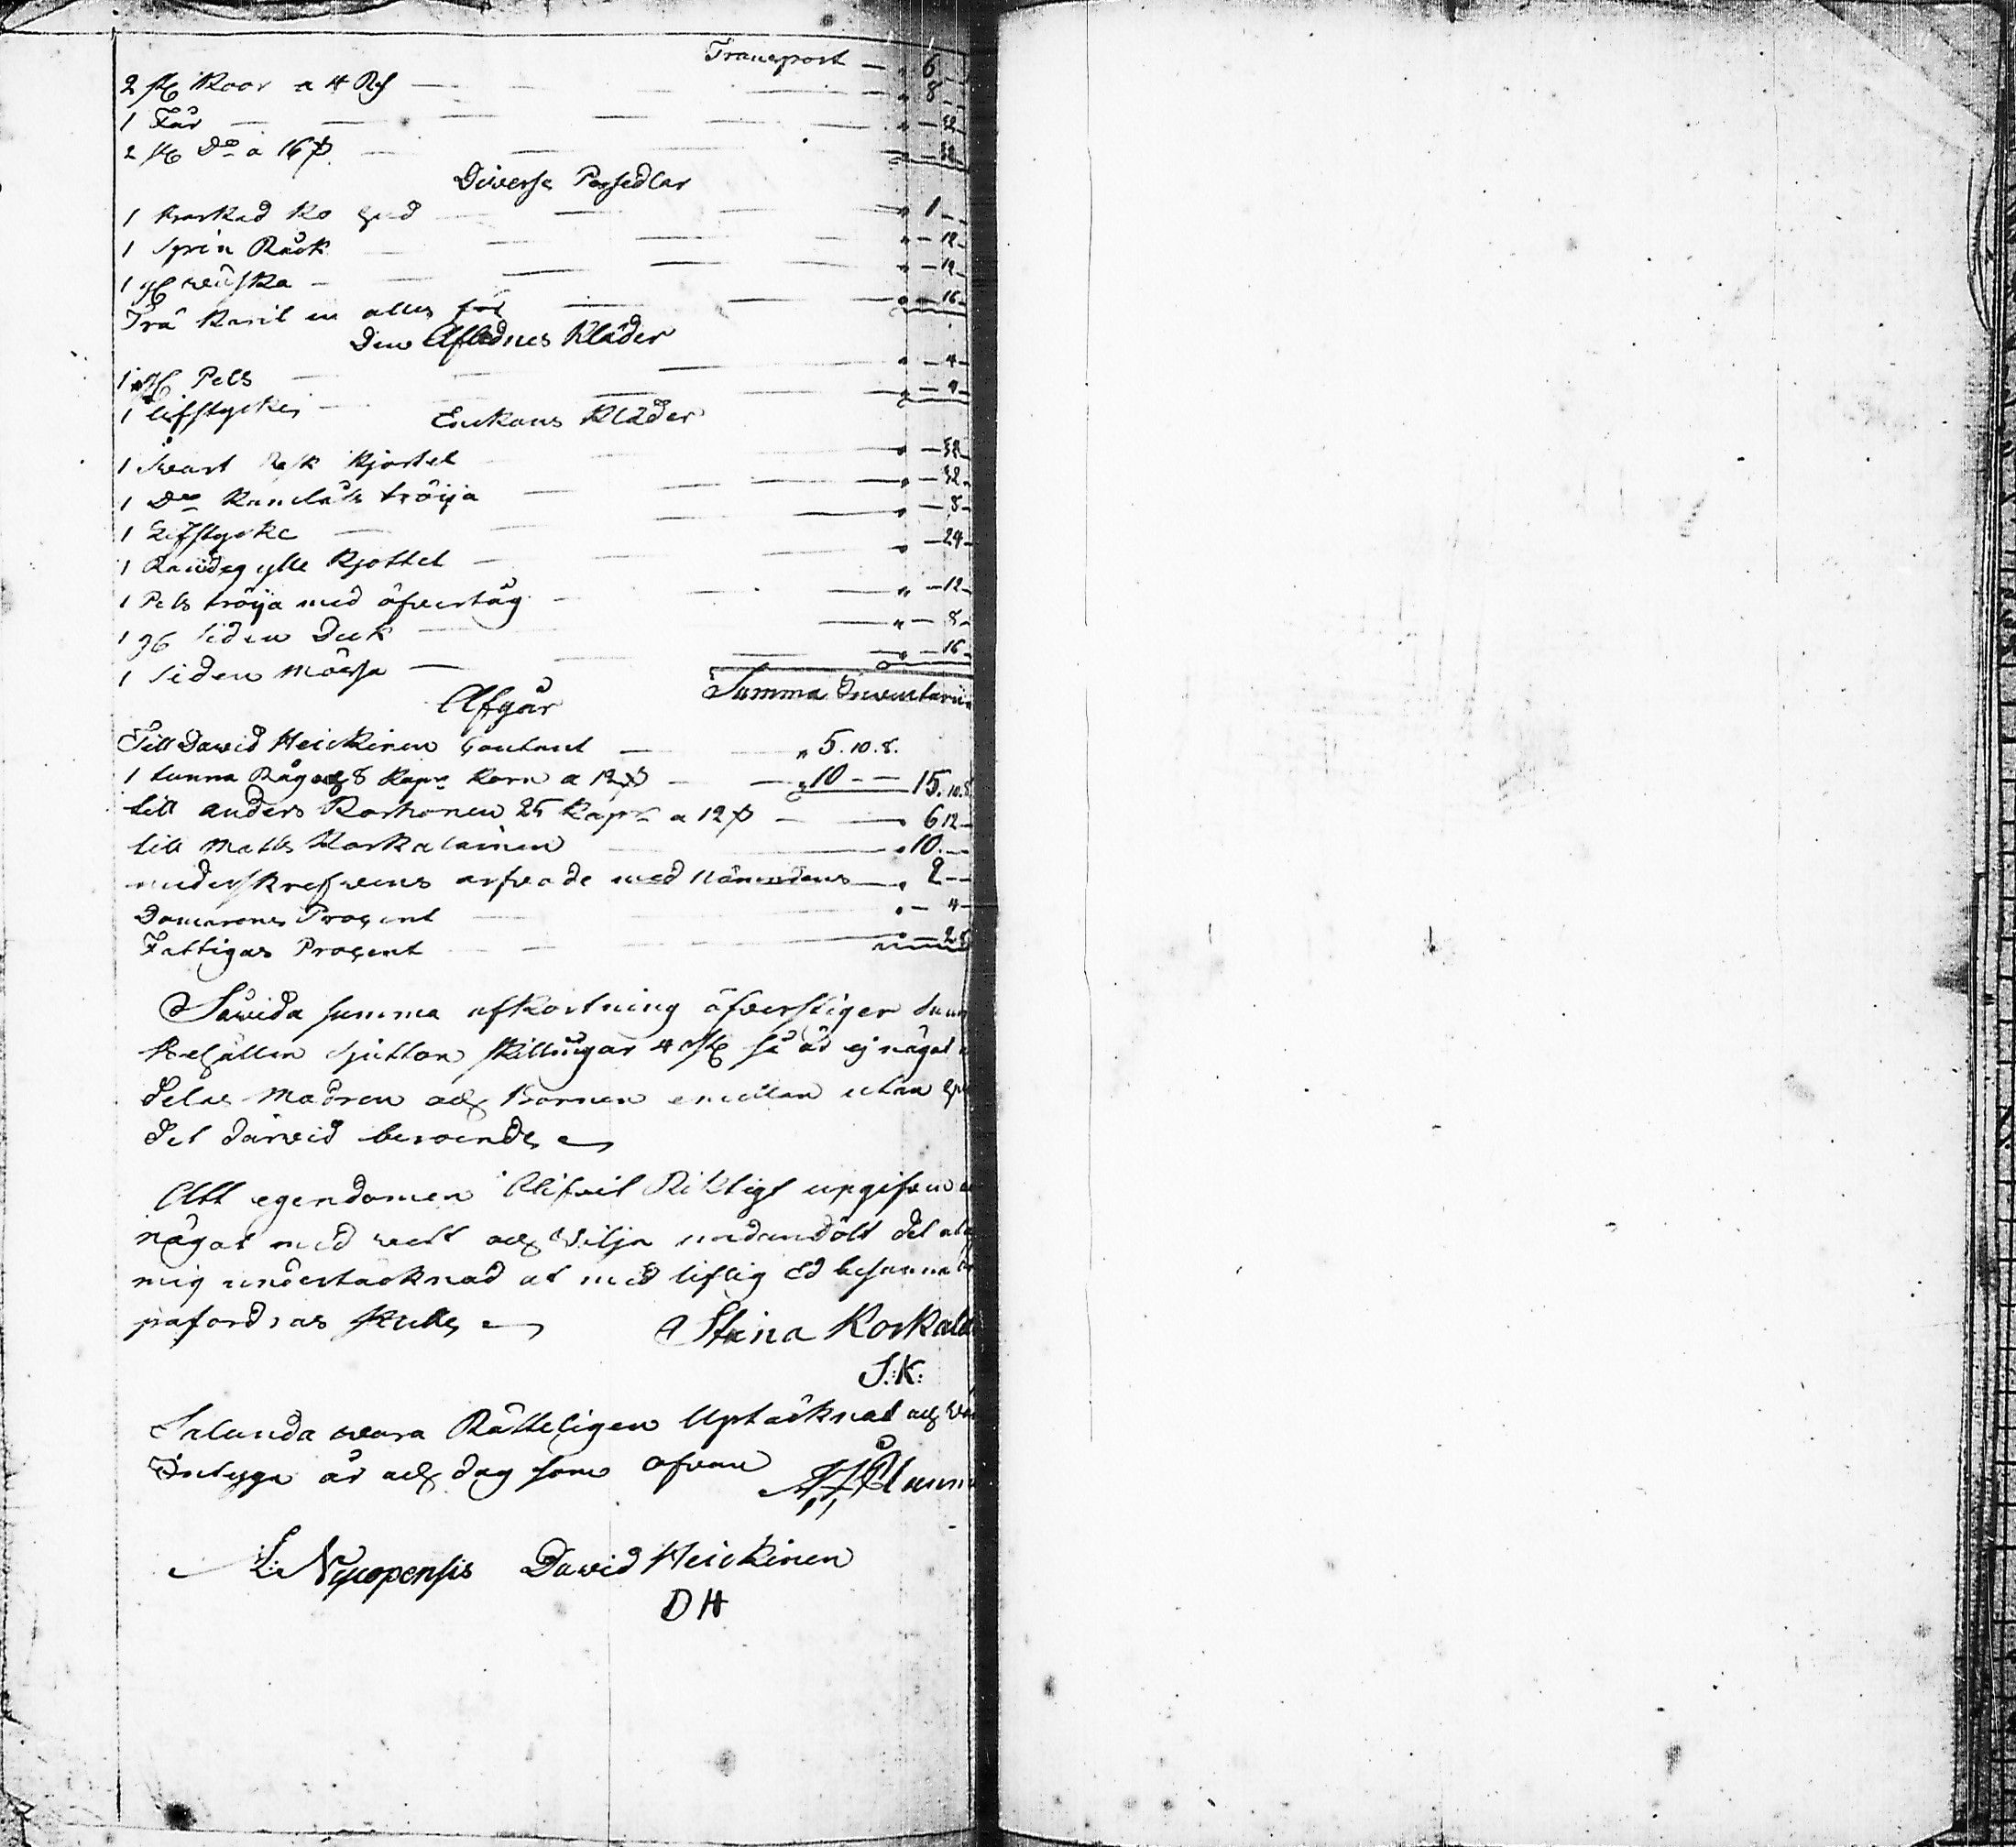 Transport — „ 6 —
2 st Koor a 4 Rd — „ 8 —
1 Får — „ — 32
2 st Do a 16 ß — „ — 32
Diverse Persedlar
1 barkad Ko hud — „ 1 —
1 Råck — „ — 12
1 — „ — 12
Trä Käril en alles för — „ — 16
Den Aflednes Kläder
1 st Pels — „ — 4
1 lifstycke — „ — 4
Enkans Kläder
1 Svart Kjortel — „ — 32
1 Do tröija — „ — 32
1 Lifstycke — „ — 8
1 Randeg ylle Kjottel — „ — 24
1 Pels tröija med öfvertåg — „ — 12
1 Siden Duk — „ — 8
1 Siden Mössa — „ — 16
Summa Inventarii
Afgår
Till David Heickinen Contant — „ 5. 10. 8.
1 tunna Råg och 8 Kapr Korn a 12 ß — „ 10 — — 15. 10. 8.
till Anders Korhonen 25 Kapr a 12 ß — „ 6 12
till Matts Korkalainen — „ 10. —
underskrefvens arfvode med Nämndens — „ 2 —
Domarens Procent — „ — 4
Fattigas Procent — 2
Såvida summa afkortning öfverstiger
behållen sjutton skillingar 4 så är ej något
delas Modren och Barnen emellan utan
det därvid beroende
Att egendomen blifvit Riktigt upgifven
något med vett och Vilja undandölt det
mig undertäcknad at med liflig Ed besanna
påfordras skulle Stina Korkala
S:K:
Salunda vara Rätteligen Uptäcknat och
Intyga år och dag som ofvan
L: Nycopensis David Heickinen
D H